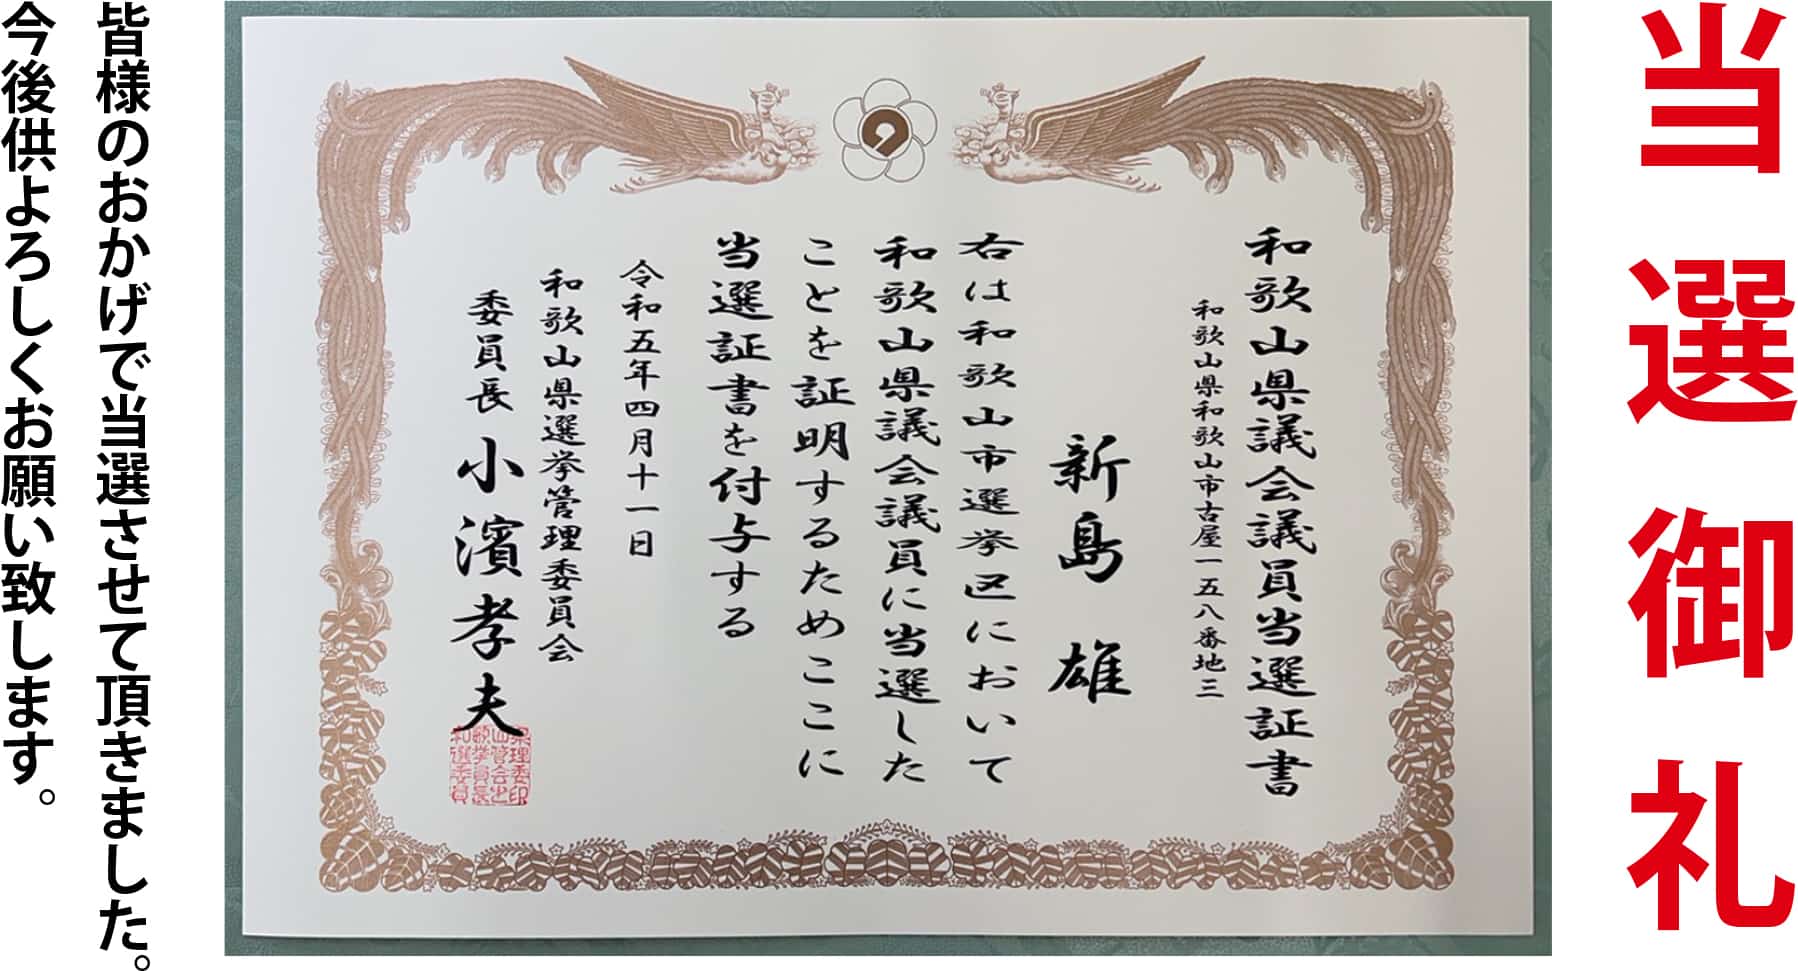 当選御礼
和歌山県議会議員当選証書
和歌山県和歌山市古屋一五八番地三
新島 雄
右は和歌山市選挙区において
和歌山県議会議員に当選した
ことを証明するためここに
当選証書を付与する
令和五年四月十一日
和歌山県選挙管理委員会
委員長 小濱孝夫
皆様のおかげで当選させて頂きました。
今後供よろしくお願い致します。